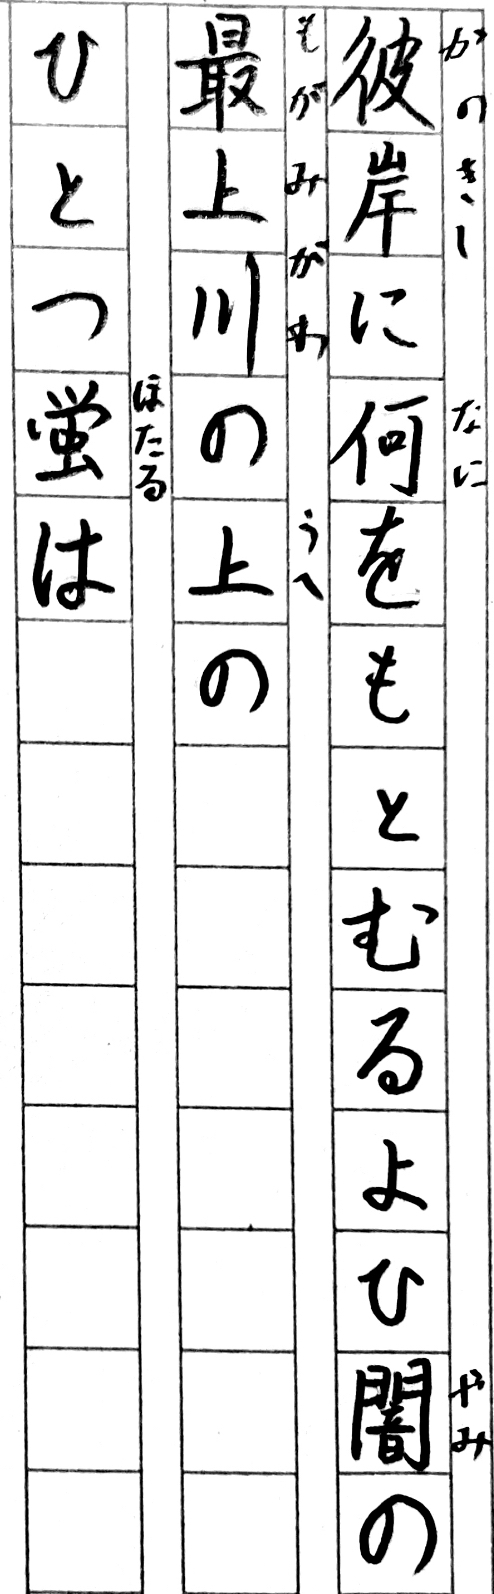 彼岸に何をもとむるよひ闇の
最上川の上の
ひとつ蛍は
かのきし
なに
やみ
もがみがわ
うへ
ほたる